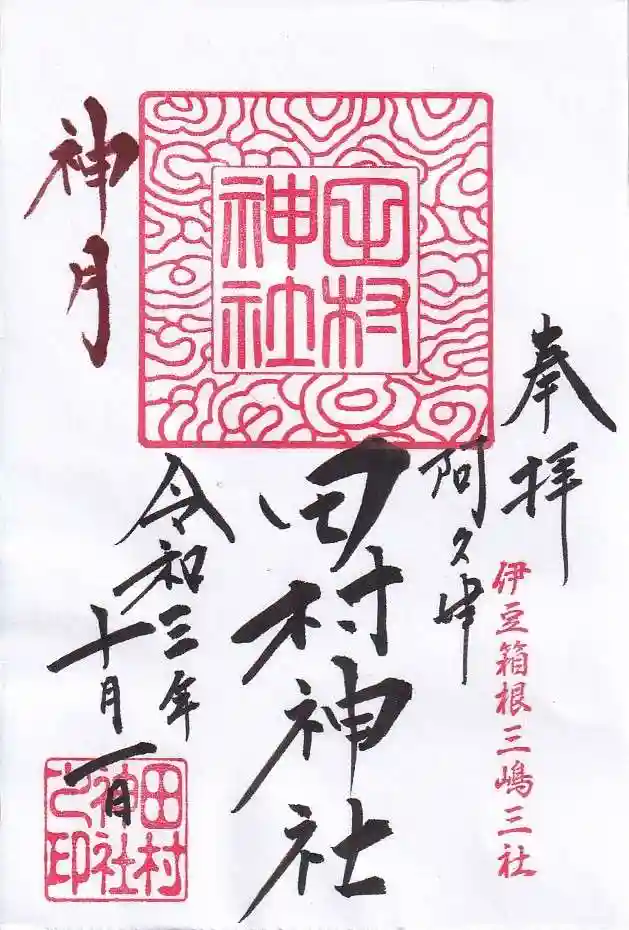 奉拝
伊豆箱根三嶋三社
阿久津
田村神社
田村
神社
令和三年
十月一日
神月
田村
神社
之印